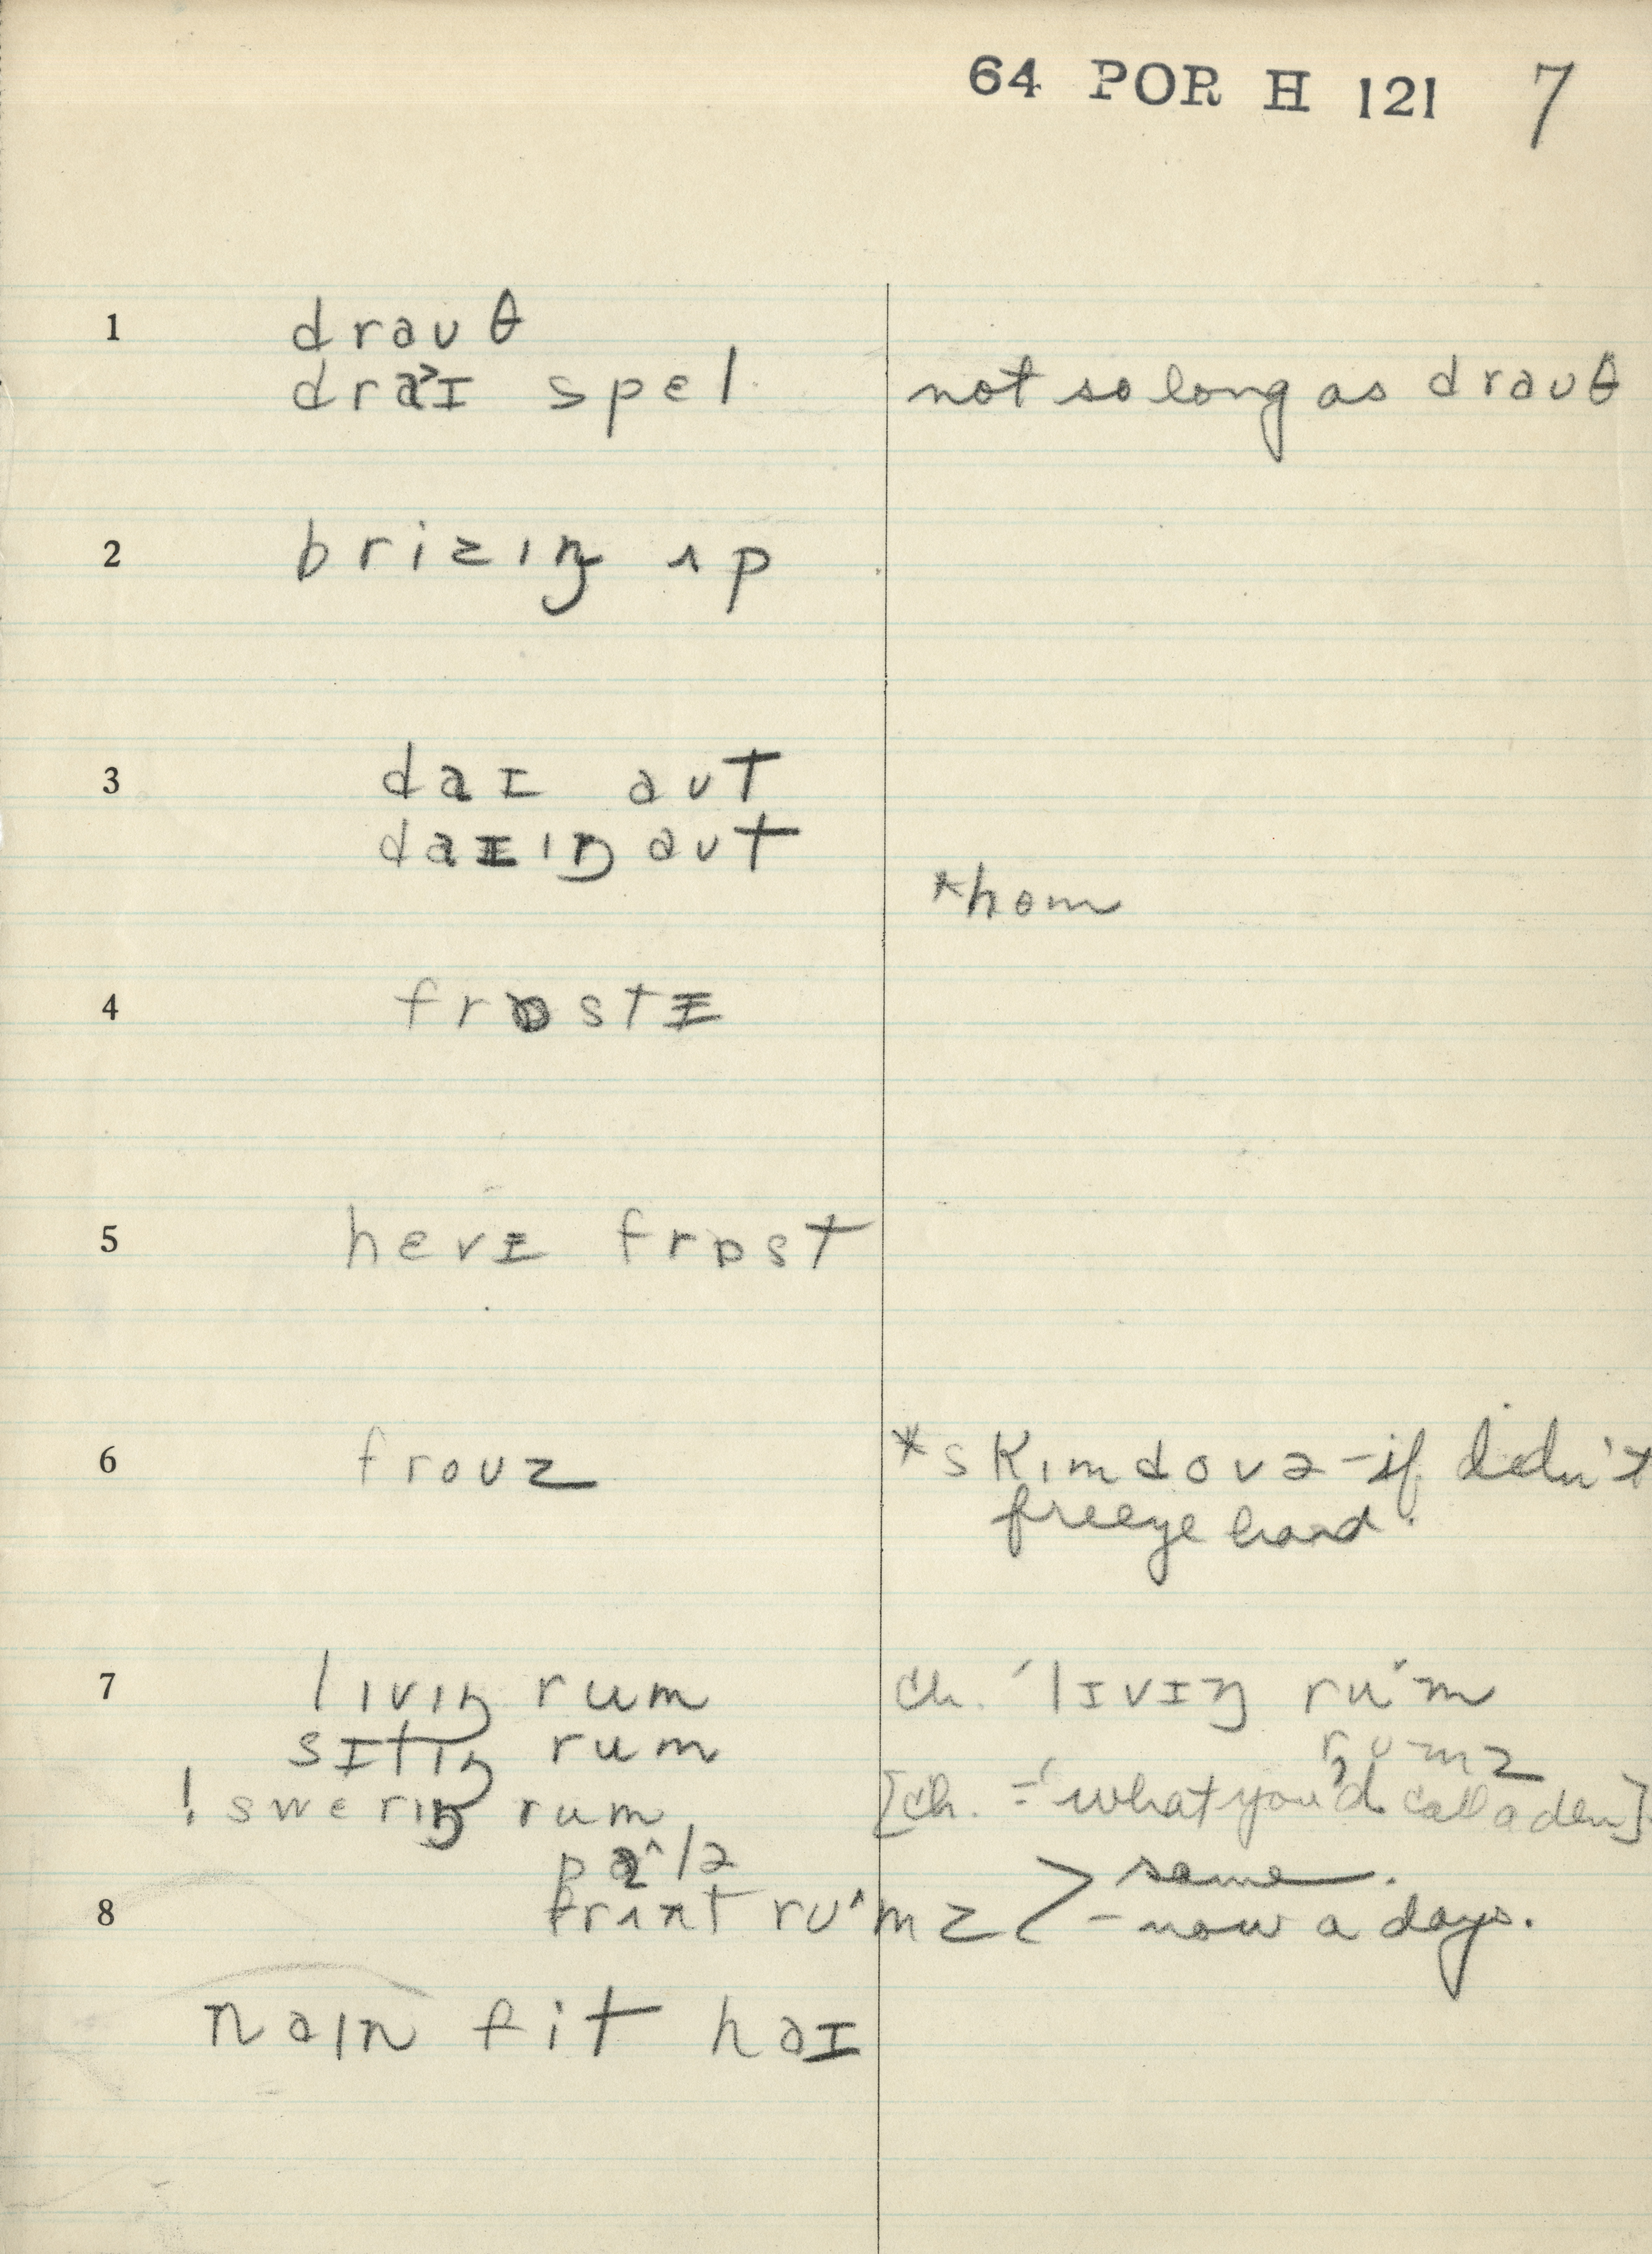 64 POR H 121 7
1 drauθ
dra˃ɪ spɛl not so long as drauθ
2 brizɪŋ ʌp
3 daɪ aut
daɪɪŋ aut
*hom
4 frɒstɪ
5 hɛvɪ frɒst
6 frouz *skɪmd ovə – if didn't
freeze hard.
7 lɪvɪŋ rum ch. ˈlɪvɪŋ ru˙m
sɪtɪŋ rum rumz
! swɛrɪŋ rum [ch. = ˈwhat you'd call a den]
pɑ^lə same.
8 frʌnt ru^mz > – now a days.
naɪn fit haɪ